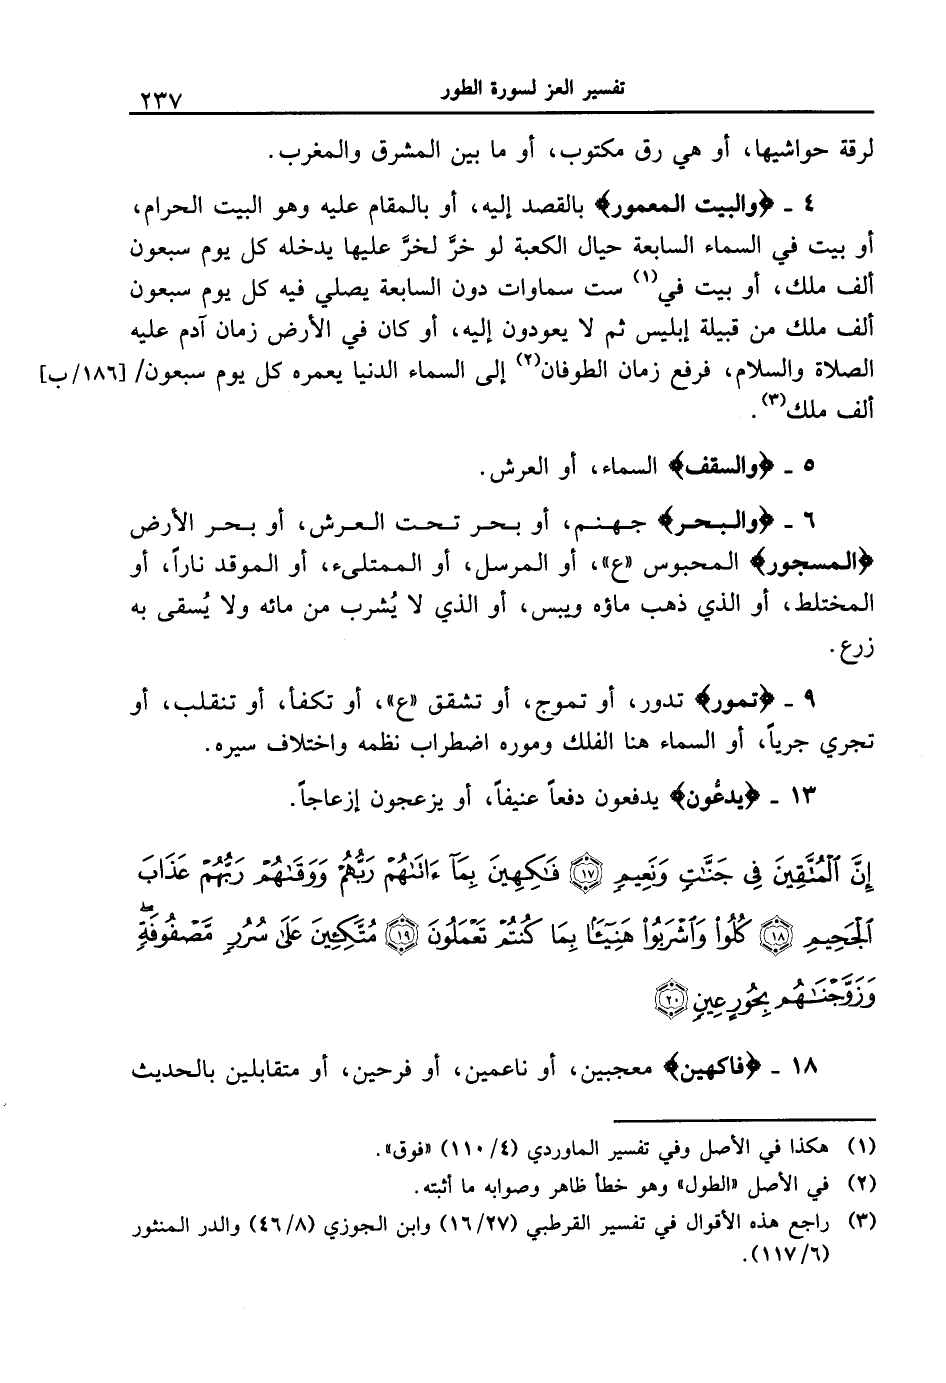 تفسير العز لسورة الطور
٢٣٧
لرقة حواشيها، أو هي رق مكتوب، أو ما بين المشرق والمغرب.
٤ ـ ﴿والبيت المعمور﴾ بالقصد إليه، أو بالمقام عليه وهو البيت الحرام،
أو بيت في السماء السابعة حيال الكعبة لو خرَّ لخرَّ عليها يدخله كل يوم سبعون
ألف ملك، أو بيت في(١) ست سماوات دون السابعة يصلي فيه كل يوم سبعون
ألف ملك من قبيلة إبليس ثم لا يعودون إليه، أو كان في الأرض زمان آدم عليه
الصلاة والسلام، فرفع زمان الطوفان(٢) إلى السماء الدنيا يعمره كل يوم سبعون/ [١٨٦/ب]
ألف ملك(٣).
٥ ـ ﴿والسقف﴾ السماء، أو العرش.
٦ ـ ﴿والبحر﴾ جهنم، أو بحر تحت العرش، أو بحر الأرض
﴿المسجور﴾ المحبوس «ع»، أو المرسل، أو الممتلىء، أو الموقد ناراً، أو
المختلط، أو الذي ذهب ماؤه ويبس، أو الذي لا يُشرب من مائه ولا يُسقى به
زرع.
٩ ـ ﴿تمور﴾ تدور، أو تموج، أو تشقق «ع»، أو تكفأ، أو تنقلب، أو
تجري جرياً، أو السماء هنا الفلك وموره اضطراب نظمه واختلاف سيره.
١٣ ـ ﴿يدعُّون﴾ يدفعون دفعاً عنيفاً، أو يزعجون إزعاجاً.
إِنَّ ٱلْمُتَّقِينَ فِى جَنَّٰتٍ وَنَعِيمٍ ١٧ فَٰكِهِينَ بِمَآ ءَاتَىٰهُمْ رَبُّهُمْ وَوَقَىٰهُمْ رَبُّهُمْ عَذَابَ
ٱلْجَحِيمِ ١٨ كُلُوا۟ وَٱشْرَبُوا۟ هَنِيٓـًٔۢا بِمَا كُنتُمْ تَعْمَلُونَ ١٩ مُتَّكِـِٔينَ عَلَىٰ سُرُرٍ مَّصْفُوفَةٍۖ
وَزَوَّجْنَٰهُم بِحُورٍ عِينٍ ٢٠
١٨ ـ ﴿فاكهين﴾ معجبين، أو ناعمين، أو فرحين، أو متقابلين بالحديث
(١) هكذا في الأصل وفي تفسير الماوردي (٤/١١٠) «فوق».
(٢) في الأصل «الطول» وهو خطأ ظاهر وصوابه ما أثبته.
(٣) راجع هذه الأقوال في تفسير القرطبي (١٦/٢٧) وابن الجوزي (٤٦/٨) والدر المنثور
(١١٧/٦).